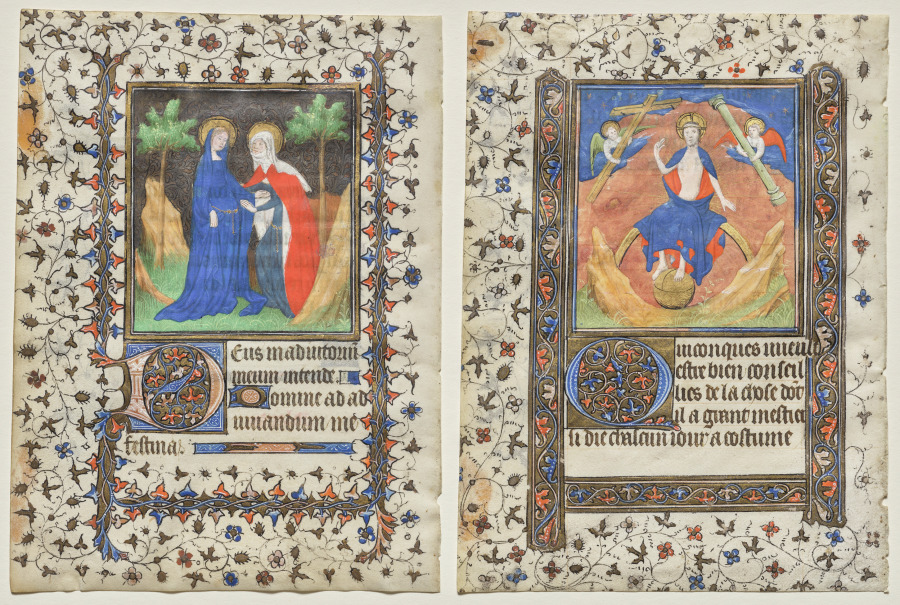 Eus in adiutorium
meum intende
Domine ad ad
iuuandum me
festina
Quiconques uieult
estre bien conseil
lies de la chose dōt
il a grant mestier
si die chascun iour a costume